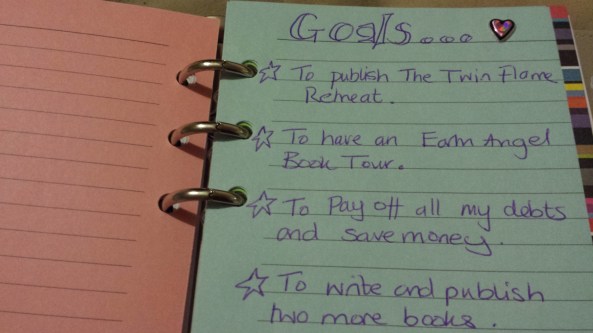 Goals....
☆ To publish The Twin Flame
Retreat.
☆ To have an Earth Angel
Book Tour.
☆ To Pay off all my debts
and save money.
☆ To write and publish
two more books.